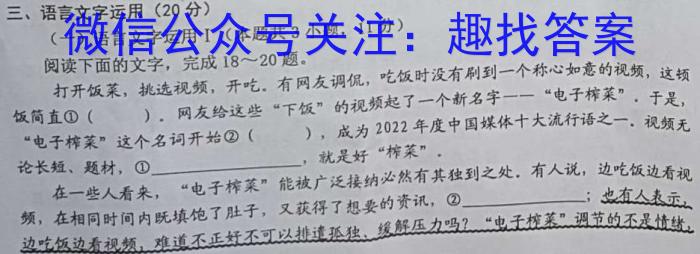 三、语言文字运用(20分)
微信公众号关注:趣找答案
阅读下面的文字,完成18~20题。
打开饭菜,挑选视频,开吃。有网友调侃,吃饭时没有刷到一个称心如意的视频,这顿
饭简直①( )。网友给这些“下饭”的视频起了一个新名字——“电子榨菜”.于是,
“电子榨菜”这个名词开始②( ),成为2022年度中国媒体十大流行语之一.视频无
论长短、题材,①____________,就是好“榨菜”.
在一些人看来,“电子榨菜”能被广泛接纳必然有其独到之处.有人说,边吃饭边看视
频,在相同时间内既填饱了肚子,又获得了想要的资讯,②____________;也有人表示,
边吃饭边看视频,难道不正好不可以排遣孤独、缓解压力吗?“电子榨菜”调节的不是情绪,